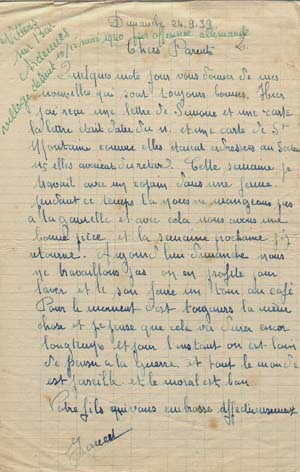 Dimanche 24.9.39
Villers
sur Bar
Ardennes
village détruit 10/12 mai 1940 par offensive allemande
Chers Parents
Quelques mots pour vous donner de mes
nouvelles qui sont toujours bonnes. Hier
j'ai reçu une lettre de Simone et une carte
la lettre était datée du 11. et une carte de St
comme elles étaient adressées au Secteur
115 elles avaient du retard. Cette semaine je
travail avec mon copain dans une ferme.
pendant ce temps là nous ne mangeons pas
à la gamelle et avec cela nous avons une
bonne pièce et la semaine prochaine j'y
retourne. Aujourd'hui dimanche nous
ne travaillons pas on en profite pour
laver et le soir faire un tour au café
Pour le moment c'est toujours la même
chose et je pense que cela va durer encore
longtemps et pour l'instant on est loin
de penser à la guerre et tout le monde
est pareille et le moral est bon
Votre fils qui vous embrasse affectueusement